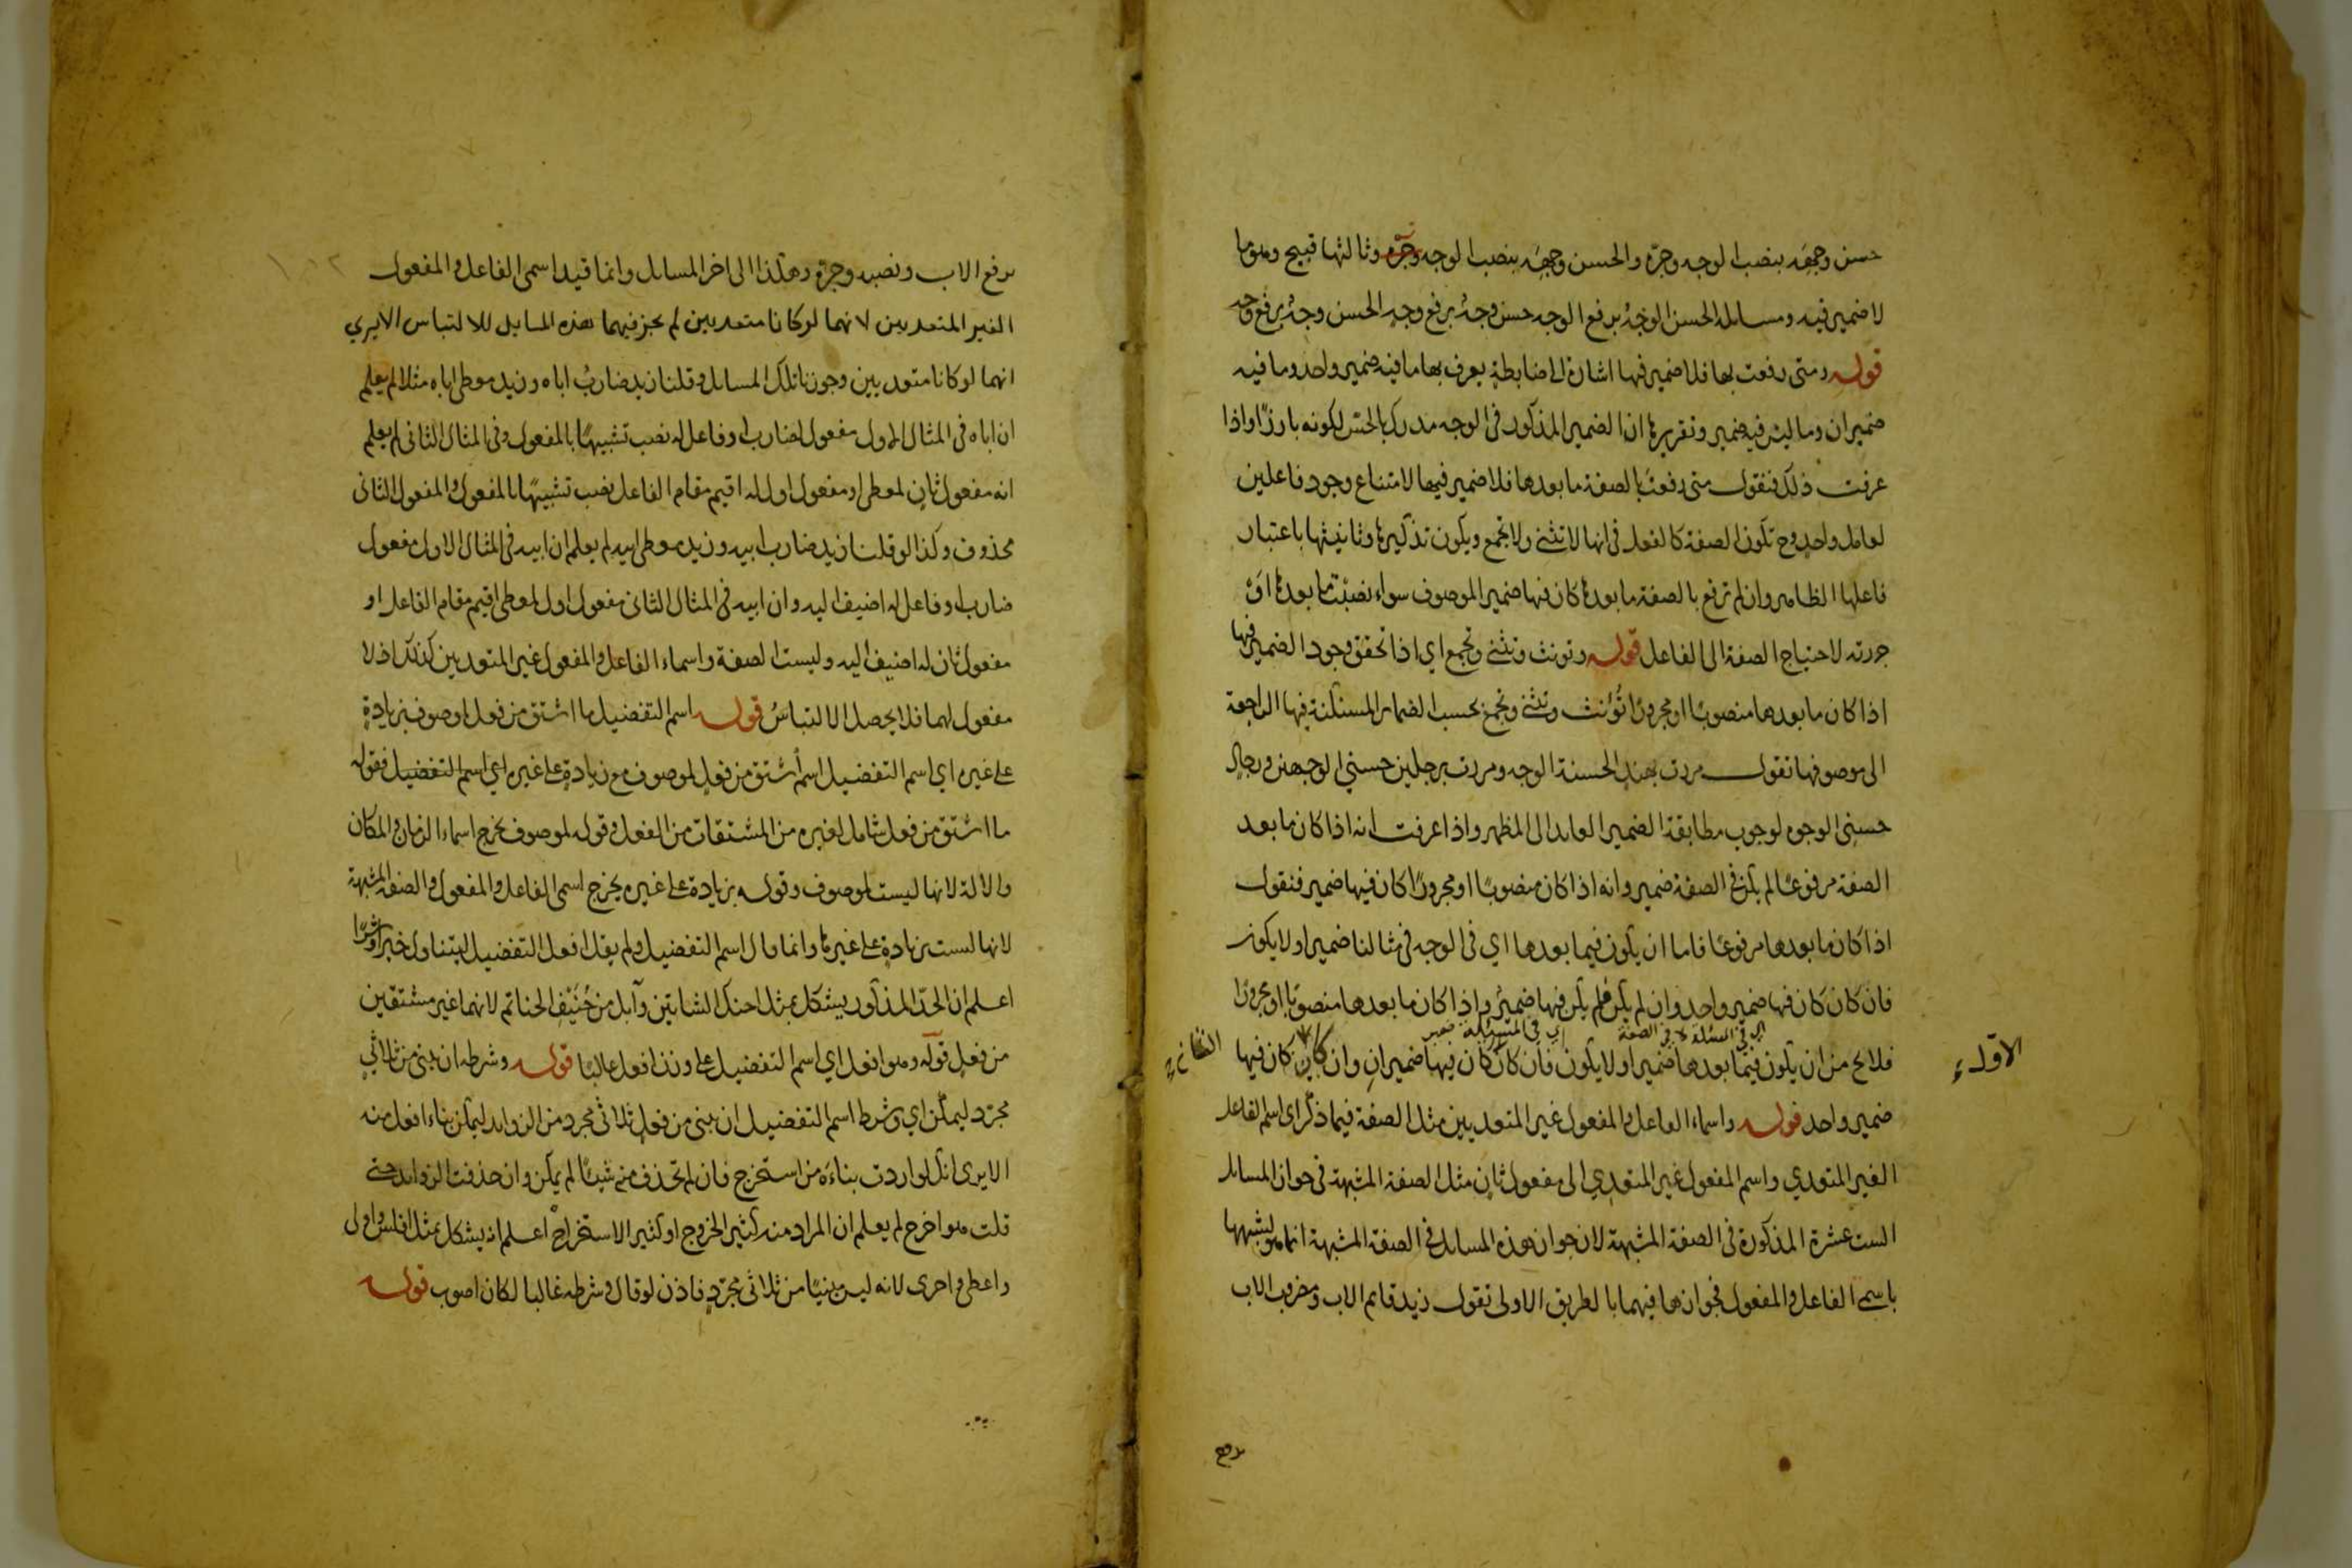 حسن وجهَه بنصب الوجه وجرّه والحسن وجهَه بنصب الوجه وجرّه وثالثها قبيح وهو ما
لا ضمير فيه ومسائله الحسن الوجهُ برفع الوجه حسن وجهُ برفع وجه الحسن وجهُ برفع وجه
قوله ومتى رفعت بها فلا ضمير فيها اشارة الى ضابطةٍ يعرف بها ما فيه ضمير واحد وما فيه
ضميران وما ليس فيه ضمير وتقريرها ان الضمير المذكور في الوجه مدرك بالحسّ لكونه بارزًا واذا
عرفت ذلك فنقول متى رفعتَ بالصفة ما بعدها فلا ضمير فيها لامتناع وجود فاعلين
لعامل واحدٍ وح تكون الصفة كالفعل في انها لا تثنى ولا تجمع ويكون تذكيرها وتانيثها باعتبار
فاعلها الظاهر وان لم ترفع بالصفة ما بعدها كان فيها ضمير الموصوف سواء نصبْتَ ما بعدها اوْ
جررته لاحتياج الصفة الى الفاعل قوله وتونث وتثنى وتجمع اي اذا تحقق وجود الضمير فيها
اذا كان ما بعدها منصوبًا او مجرورًا تُؤنث وتثنى وتجمع بحسب الضمائر المستكنة فيها الراجعة
الى موصوفها تقول مررت بهندٍ الحسنة الوجه ومررت برجلين حسني الوجهين ورجالٍ
حسني الوجوه لوجوب مطابقة الضمير العايد الى المظهر واذا عرفت انه اذا كان ما بعد
الصفة مرفوعًا لم يكن في الصفة ضمير وانه اذا كان منصوبًا او مجرورًا كان فيها ضمير فنقول
اذا كان ما بعدها مرفوعًا فاما ان يكون فيما بعدها اي في الوجه في مثالنا ضمير او لا يكون
فان كان كان فيها ضمير واحد وان لم يكن فلم يكن فيها ضميرٌ واذا كان ما بعدها منصوبًا او مجرورًا
اي في المسئلة لا في الصفة اي في المسئلة ضمير
فلا يخ من ان يكون فيما بعدها ضمير او لا يكون فان كان كان فيها ضميرانِ وان كان كان فيها
الاولى
الثانية
ضمير واحد قوله واسماء الفاعل والمفعول غير المتعديين مثل الصفة فيما ذكر اي اسم الفاعل
الغير المتعدي واسم المفعول غير المتعدي الى مفعول ثانٍ مثل الصفة المشبهة في جواز المسائل
الست عشرة المذكورة في الصفة المشبهة لان جواز هذه المسائل في الصفة المشبهة انما هو لشبهها
باسمي الفاعل والمفعول فجوازها فيهما بالطريق الاولى تقول زيد قايم الاب ومضروب الاب
برفع
١٠٢
برفع الاب ونصبه وجرّه وهكذا الى اخر المسائل وانما قيد اسمى الفاعل والمفعول
الغير المتعديين لانهما لو كانا متعديين لم يجز فيهما هذه المسايل للالتباس الا يري
انهما لو كانا متعديين وجوزنا تلك المسائل وقلنا زيد ضاربٌ اباه وزيد معطى اباه مثلا لم يعلم
ان اباه في المثال الاول مفعول لضارب او فاعل له نصب تشبيهًا بالمفعول وفي المثال الثاني لم يعلم
انه مفعول ثانٍ لمعطى او مفعول اول له اقيم مقام الفاعل نصب تشبيهًا بالمفعول والمفعول الثاني
محذوف وكذا لو قلنا زيد ضارب ابيه وزيد معطى ابيه لم يعلم ان ابيه في المثال الاول مفعول
ضارب او فاعل له اضيف اليه وان ابيه في المثال الثاني مفعول اول لمعطى اقيم مقام الفاعل او
مفعول ثان له اضيف اليه وليست الصفة واسماء الفاعل والمفعول غير المتعديين كذلك اذ لا
مفعول لهما فلا يحصل الالتباسُ قوله اسم التفضيل ما اشتق من فعل لموصوف بزيادةٍ
على غيره اي اسم التفضيل اسم اشتق من فعلٍ لموصوف مع زيادةٍ على غيره اي اسم التفضيل فقوله
ما اشتق من فعل شامل لغيره من المشتقات من الفعل وقوله لموصوف يخرج اسماء الزمان والمكان
والالة لانها ليست لموصوف وقوله بزيادة على غيره يخرج اسمى الفاعل والمفعول والصفة المشبهة
لانها ليست بزيادةٍ على غيرها وانما قال اسم التفضيل ولم يقل افعل التفضيل ليتناول خيرًا وشرًا
اعلم ان الحدّ المذكور يشكل بمثل احنك الشاتين وآبل من حُنَيْفِ الحناتم لانهما غير مشتقين
من فعلٍ قوله وهو افعل اي اسم التفضيل على وزن افعل غالبًا قوله وشرطه ان يبنى من ثلاثيٍ
مجرّد ليمكن اي وشرط اسم التفضيل ان يبنى من فعلٍ ثلاثي مجرد من الزوايد ليمكن بناء افعل منه
الا يرى انك لو اردت بناءَه من استخرج فان لم تحذف منه شيئًا لم يمكن وان حذفت الزوايد حتى
قلت هو اخرج لم يعلم ان المراد منه كثير الخروج او كثير الاستخراج اعلم انه يشكل بمثل افلس واولى
واعطى واحرى لانه ليس مبنيًا من ثلاثى مجرّدٍ فاذن لو قال وشرطه غالبا لكان اصوب قوله